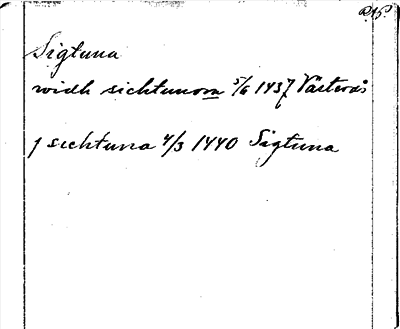 Sigtuna
widh sichtunom 5/6 1437 Västerås
j sichtuna 4/3 1440 Sigtuna